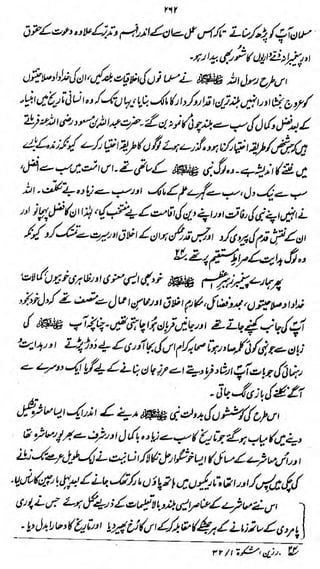 ۲۶۲
مسلمان آپ کو پڑھ کر سناتے تاکہ اس عمل سے ان کے اندر فہم و تدبّر کے علاوہ دعوت کے حقوق
اور پیغمبرانہ ذمّے داریوں کا شعور بھی بیدار ہو۔
اس طرح رسول اللہ ﷺ نے مسلمانوں کی اخلاقیات بلند کیں، ان کی خداداد صلاحیتوں
کو عروج بخشا اور انہیں بلند ترین اقدار و کردار کا مالک بنایا، یہاں تک کہ وہ انسانی تاریخ میں انبیاء
کے بعد فضل و کمال کی سب سے بلند چوٹی کا نمونہ بن گئے۔ حضرت عبد اللہ بن مسعود رضی اللہ عنہ فرماتے
ہیں کہ جس شخص کو طریقہ اختیار کرنا ہو وہ گذرے ہوئے لوگوں کا طریقہ اختیار کرے کیونکہ زندہ کے بارے
میں فتنے کا اندیشہ ہے۔ وہ لوگ نبی ﷺ کے ساتھی تھے۔ اس امت میں سب سے افضل،
سب سے نیک دل، سب سے گہرے علم کے مالک اور سب سے زیادہ بے تکلف۔ اللہ
نے انہیں اپنے نبی کی رفاقت اور اپنے دین کی اقامت کے لیے منتخب کیا، لہٰذا ان کا فضل پہچانو اور
ان کے نقش قدم کی پیروی کرو اور جس قدر ممکن ہو ان کے اخلاق اور سیرت سے تمسک کرو کیونکہ
وہ لوگ ہدایت کے صراطِ مستقیم پر تھے۔
پھر ہمارے پیغمبر رہبرِ اعظم ﷺ خود بھی ایسی معنوی اور ظاہری خوبیوں، کمالات،
خداداد صلاحیتوں، مجد و فضائل، مکارمِ اخلاق اور محاسنِ اعمال سے متصف تھے کہ دل خود بخود
آپ کی جانب کھنچے جاتے تھے اور جانیں قربان ہوا چاہتی تھیں۔ چنانچہ آپ ﷺ کی
زبان سے جونہی کوئی کلمہ صادر ہوتا صحابہ کرام اس کی بجا آوری کے لیے دوڑ پڑتے اور ہدایت و
رہنمائی کی جو بات آپ ارشاد فرما دیتے اسے حرزِ جان بنانے کے لیے گویا ایک دوسرے سے
آگے نکلنے کی بازی لگ جاتی۔
اس طرح کی کوششوں کی بدولت نبی ﷺ مدینے کے اندر ایک ایسا معاشرہ تشکیل
دینے میں کامیاب ہو گئے جو تاریخ کا سب سے زیادہ باکمال اور شرف سے بھرپور معاشرہ تھا
اور اس معاشرے کے مسائل کا ایسا خوشگوار حل نکالا کہ انسانیت نے ایک طویل عرصے تک زمانے
کی چکی میں پس کر اور اتھاہ تاریکیوں میں ہاتھ پاؤں مار کر تھک جانے کے بعد پہلی بار چین کا سانس لیا۔
اس نئے معاشرے کے عناصر ایسی بلند و بالا تعلیمات کے ذریعے مکمل ہوئے جس نے پوری
پامردی کے ساتھ زمانے کے ہر جھٹکے کا مقابلہ کر کے اس کا رُخ پھیر دیا اور تاریخ کا دھارا بدل دیا۔
رزین، مشکوٰۃ ۱/۳۲